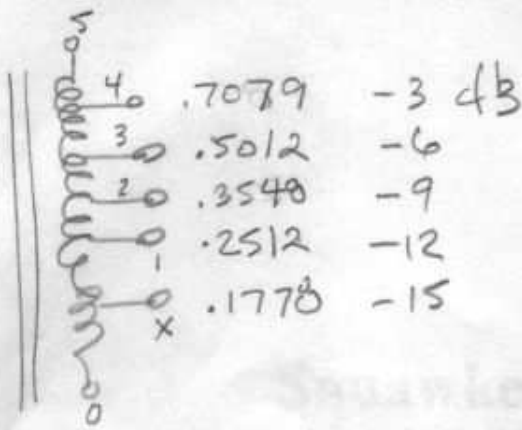 5
4 .7079 -3 dB
3 .5012 -6
2 .3548 -9
1 .2512 -12
X .1778 -15
0